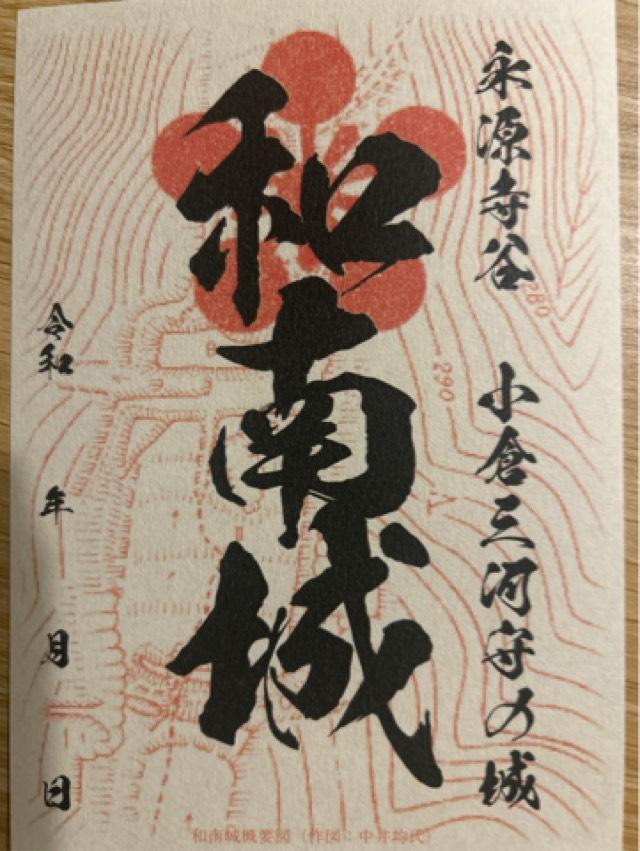 永源寺谷 小倉三河守の城
和南城
令和 年 月 日
280
290
和南城概要図（作図：中井均氏）